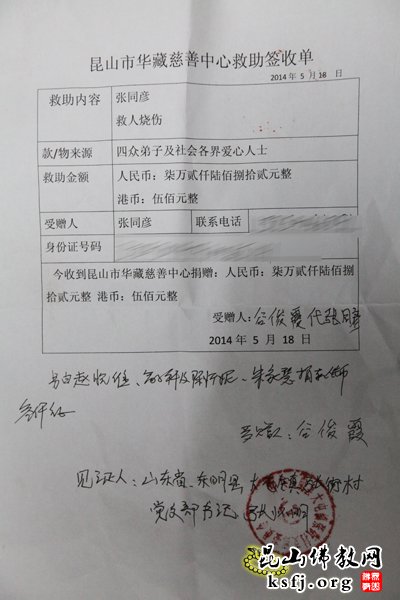 昆山市华藏慈善中心救助签收单
2014 年 5 月 18 日
救助内容 张同彦
救人烧伤
款/物来源 四众弟子及社会各界爱心人士
救助金额 人民币：柒万贰仟陆佰捌拾贰元整
港币：伍佰元整
受赠人 张同彦 联系电话
身份证号码
今收到昆山市华藏慈善中心捐赠：人民币：柒万贰仟陆佰捌
拾贰元整 港币：伍佰元整
受赠人：谷俊霞代张同彦
2014 年 5 月 18 日
谷俊霞
见证人：山东省、东明县
村
党支部书记
昆山佛教网
ksfj.org